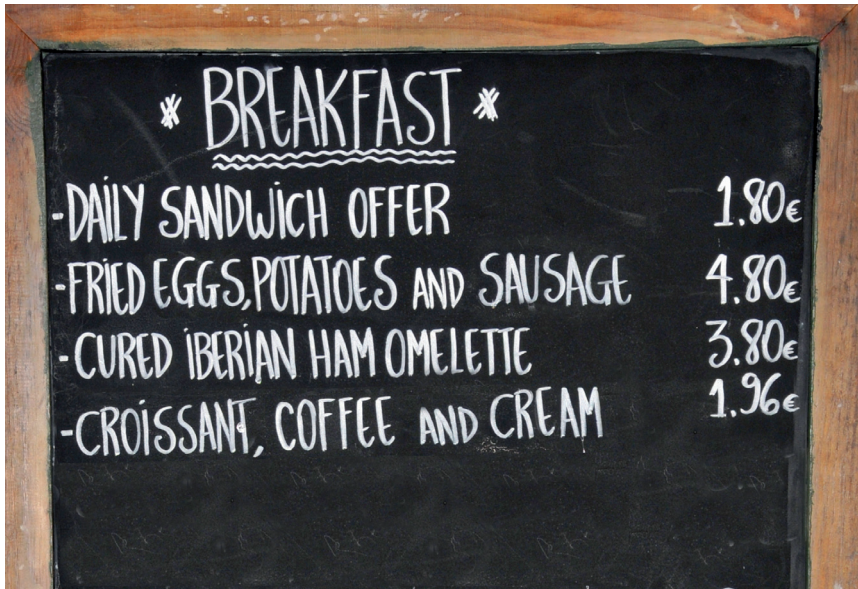 * BREAKFAST *
-DAILY SANDWICH OFFER 1.80€
-FRIED EGGS, POTATOES AND SAUSAGE 4.80€
-CURED IBERIAN HAM OMELETTE 3.80€
-CROISSANT, COFFEE AND CREAM 1.96€